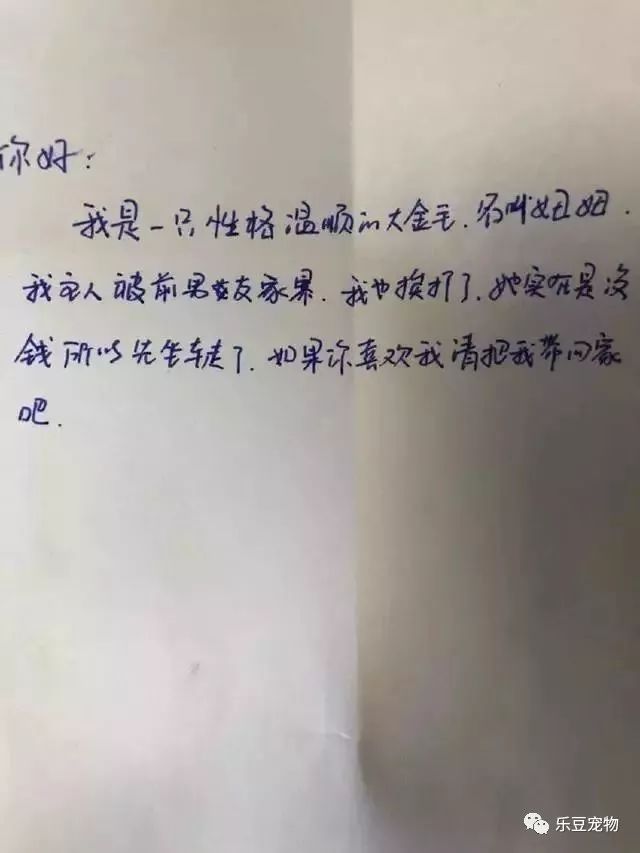 你好：
我是一只性格温顺的大金毛.名叫妞妞.
我主人被前男友家暴.我也挨打了.她实在是没
钱所以先坐车走了.如果你喜欢我请把我带回家
吧.
乐豆宠物